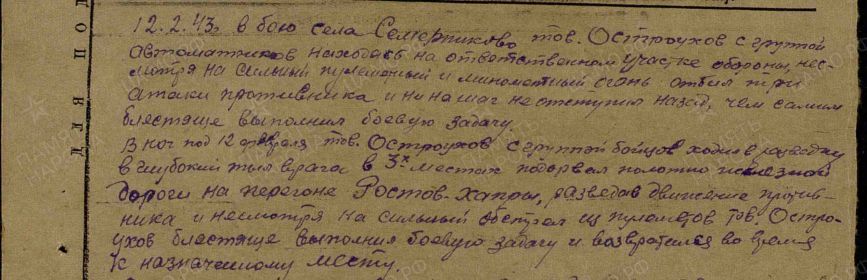 12.2.43г. в бою села Семерниково тов. Остроухов с группой
автоматчиков находясь на ответственном участке обороны, нес-
мотря на сильный пулеметный и минометный огонь отбил три
атаки противника и ни на шаг не отступил назад, чем самим
блестяще выполнил боевую задачу.
В ноч под 12 февраля тов. Остроухов с группой бойцов ходил в разведку
в глубокий тыл врага в 3х местах подорвал полотно железной
дороги на перегоне Ростов-Хапры, разведав движение против-
ника и несмотря на сильный обстрел из пулометов тов. Остро-
ухов блестяще выполнил боевую задачу и возвратился во время
к назначенному месту.